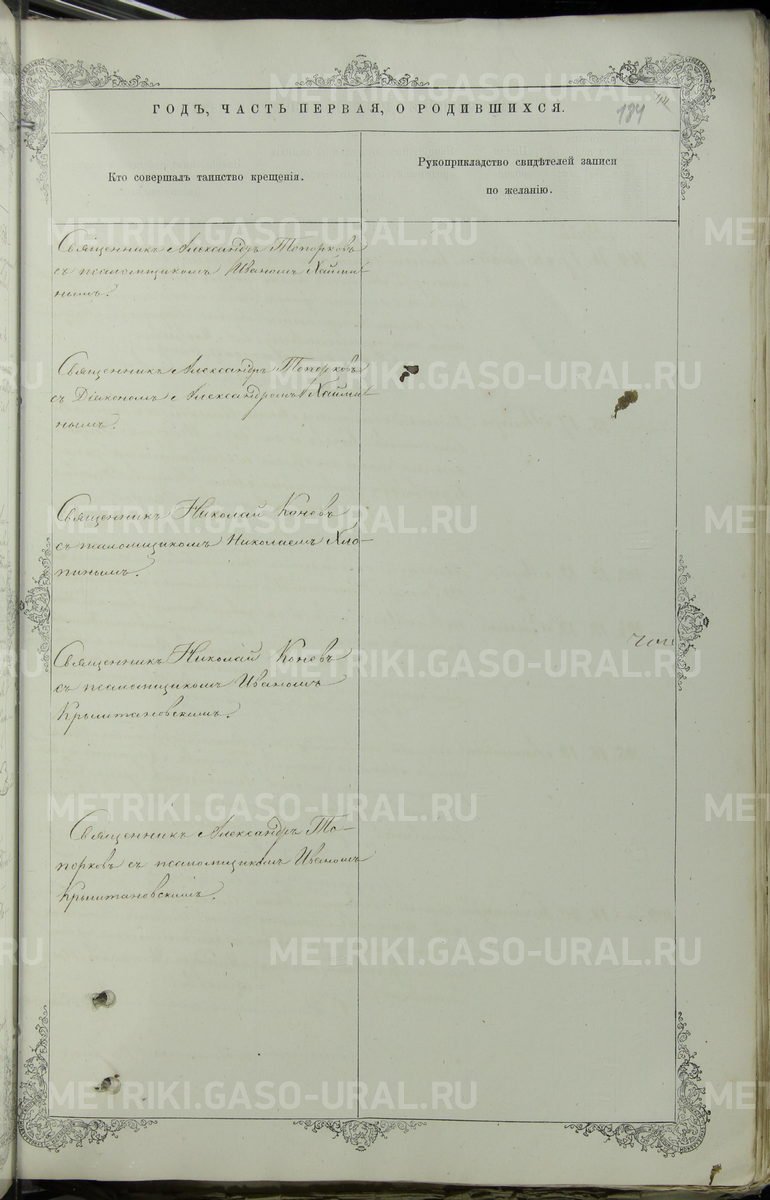 184
ГОДЪ, ЧАСТЬ ПЕРВАЯ, О РОДИВШИХСЯ.
Кто совершалъ таинство крещенія.
Рукоприкладство свидѣтелей записи
по желанію.
Священникъ Александръ Топорковъ
съ псаломщикомъ Иваномъ
нымъ.
Священникъ Александръ Топорковъ
съ Діакономъ Александромъ
нымъ.
Священникъ Николай Коневъ
съ псаломщикомъ Николаемъ Хло-
пинымъ.
Священникъ Николай Коневъ
съ псаломщикомъ Иваномъ
Крыштановскимъ.
Священникъ Александръ То-
порковъ съ псаломщикомъ Иваномъ
Крыштановскимъ.
METRIKI.GASO-URAL.RU